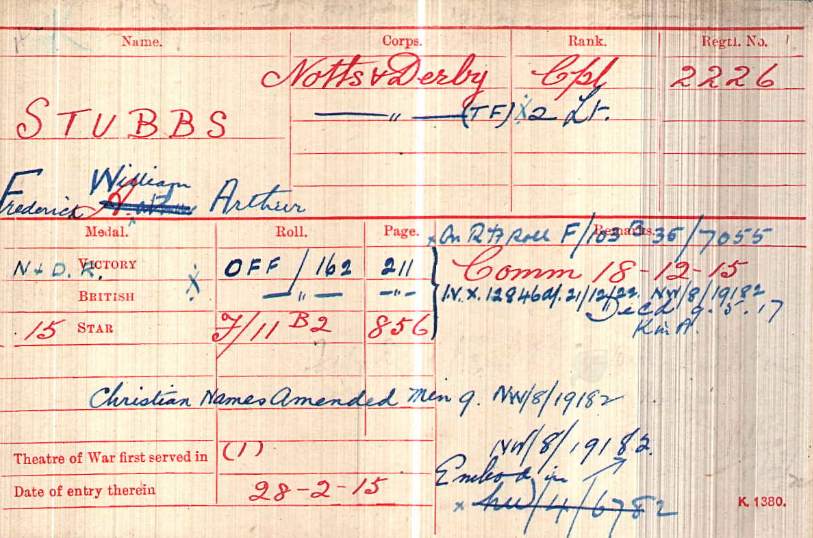 Name. Corps. Rank. Regtl. No.
Notts & Derby Cpl 2226
—— " —— (TF) x 2 Lt.
STUBBS
William
Frederick Arthur
Medal. Roll. Page. Remarks.
x On R & F Roll F/103 B 35/7055
N & D. R. VICTORY x OFF/162 211 Comm 18-12-15
BRITISH — " — - " - I.V.X. 12846 d/. 21/12/22. NW/8/19182
Died 9.5.17
K in A.
15 STAR F/11 B2 856
Christian Names Amended Min 9. NW/8/19182
NW/8/19182.
Theatre of War first served in (1)
Embod in
Date of entry therein 28-2-15
x NW/4/6782
K. 1380.